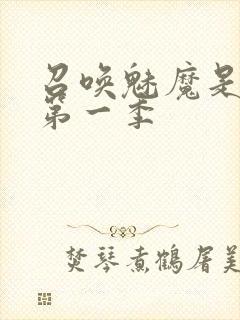 召唤魅魔是
第一季
焚琴煮鹤屠美